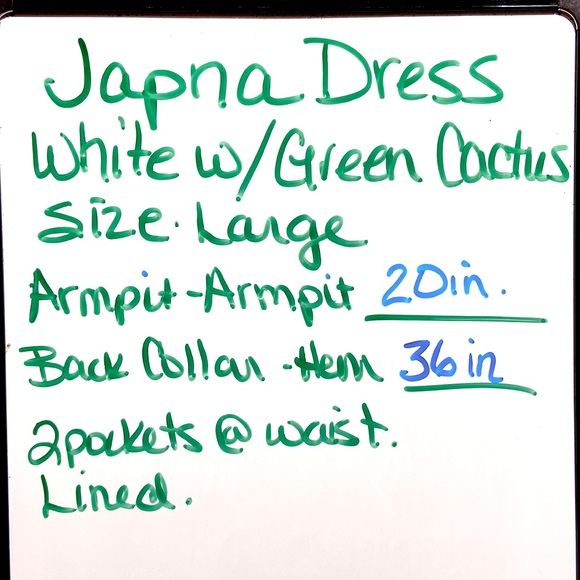 Japna Dress
White w/Green Cactus
Size. Large
Armpit-Armpit 20in.
Back Collar-Hem 36in
2pockets @ waist.
Lined.